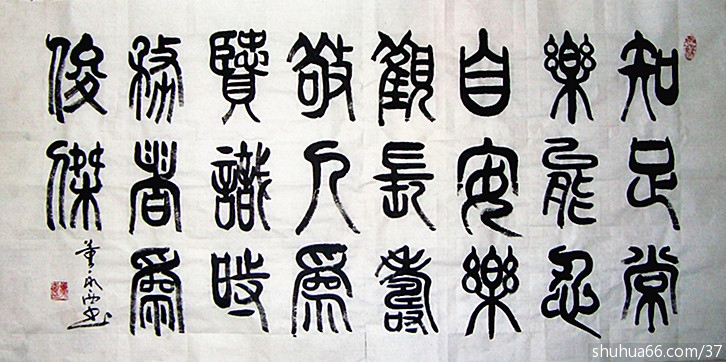 知足常
樂能忍
自安樂
觀長壽
敬人爲
賢識時
務者爲
俊傑
shuhua66.com/37